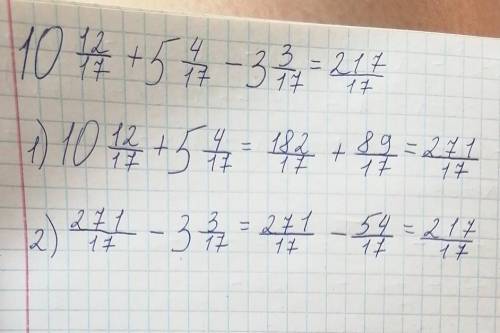 10 12/17 + 5 4/17 - 3 3/17 = 217/17
1) 10 12/17 + 5 4/17 = 182/17 + 89/17 = 271/17
2) 271/17 - 3 3/17 = 271/17 - 54/17 = 217/17